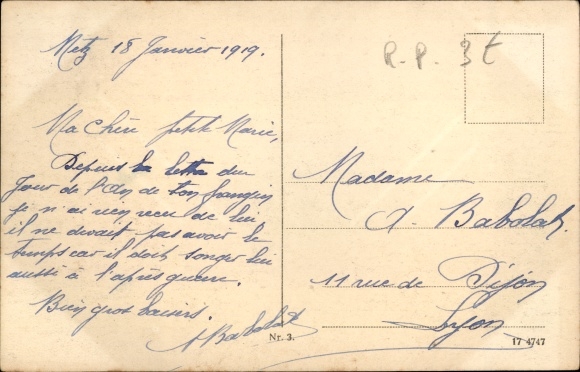 Metz 18 Janvier 1919.
Ma chère petite Marie,
Depuis la lettre du
Jour de l'An de ton frangin
je n'ai rien reçu de lui
il ne devait pas avoir le
temps car il doit songer lui
aussi à l'après guerre.
Bien gros baisers.
A Babolat
Nr. 3.
R.P. 3t
Madame
A. Babolat
11 rue de Dijon
Lyon
17 4747